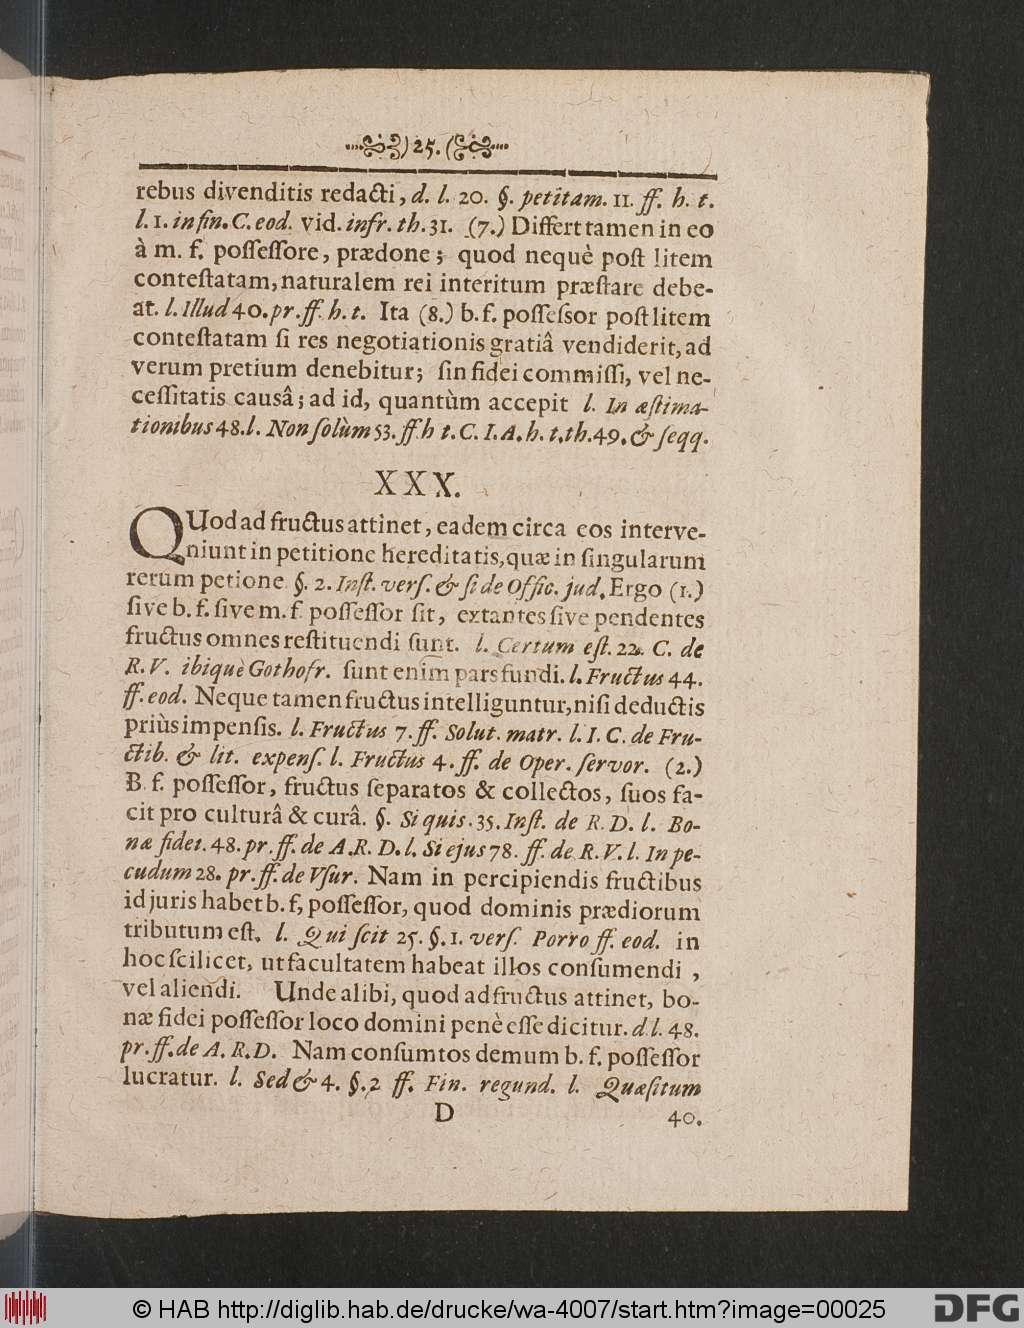 )25.(
rebus divenditis redacti, d. l. 20. §. petitam. 11. ff. h. t.
l. 1. in fin. C. eod. vid. infr. th. 31. (7.) Differt tamen in eo
à m. f. poſſeſſore, prædone; quod nequè poſt litem
conteſtatam, naturalem rei interitum præſtare debe-
at. l. Illud 40. pr. ff. h. t. Ita (8.) b. f. poſſeſsor poſt litem
conteſtatam ſi res negotiationis gratiâ vendiderit, ad
verum pretium denebitur; ſin fidei commiſſi, vel ne-
ceſſitatis causâ; ad id, quantùm accepit l. In æſtima-
tionibus 48. l. Non ſolùm 53. ff h t. C. I. A. h. t. th. 49. & ſeqq.
XXX.
QUod ad fructus attinet, eadem circa eos interve-
niunt in petitione hereditatis, quæ in ſingularum
rerum petione §. 2. Inſt. verſ. & ſi de Offic. jud. Ergo (1.)
ſive b. f. ſive m. f. poſſeſſor ſit, extantes ſive pendentes
fructus omnes reſtituendi ſunt. l. Certum eſt. 22. C. de
R. V. ibiquè Gothofr. ſunt enim pars fundi. l. Fructus 44.
ff. eod. Neque tamen fructus intelliguntur, niſi deductis
priùs impenſis. l. Fructus 7. ff. Solut. matr. l. I. C. de Fru-
ctib. & lit. expenſ. l. Fructus 4. ff. de Oper. ſervor. (2.)
B. f. poſſeſſor, fructus ſeparatos & collectos, ſuos fa-
cit pro culturâ & curâ. §. Si quis. 35. Inſt. de R. D. l. Bo-
næ fidei. 48. pr. ff. de A. R. D. l. Si ejus 78. ff. de R. V. l. In pe-
cudum 28. pr. ff. de Vſur. Nam in percipiendis fructibus
id juris habet b. f, poſſeſſor, quod dominis prædiorum
tributum eſt. l. Qui ſcit 25. §. 1. verſ. Porro ff. eod. in
hoc ſcilicet, ut facultatem habeat illos conſumendi ,
vel aliendi. Unde alibi, quod ad fructus attinet, bo-
næ fidei poſſeſſor loco domini penè eſſe dicitur. d. l. 48.
pr. ff. de A. R. D. Nam conſumtos demum b. f. poſſeſſor
lucratur. l. Sed & 4. §. 2 ff. Fin. regund. l. Quæſitum
D 40.
© HAB http://diglib.hab.de/drucke/wa-4007/start.htm?image=00025
DFG